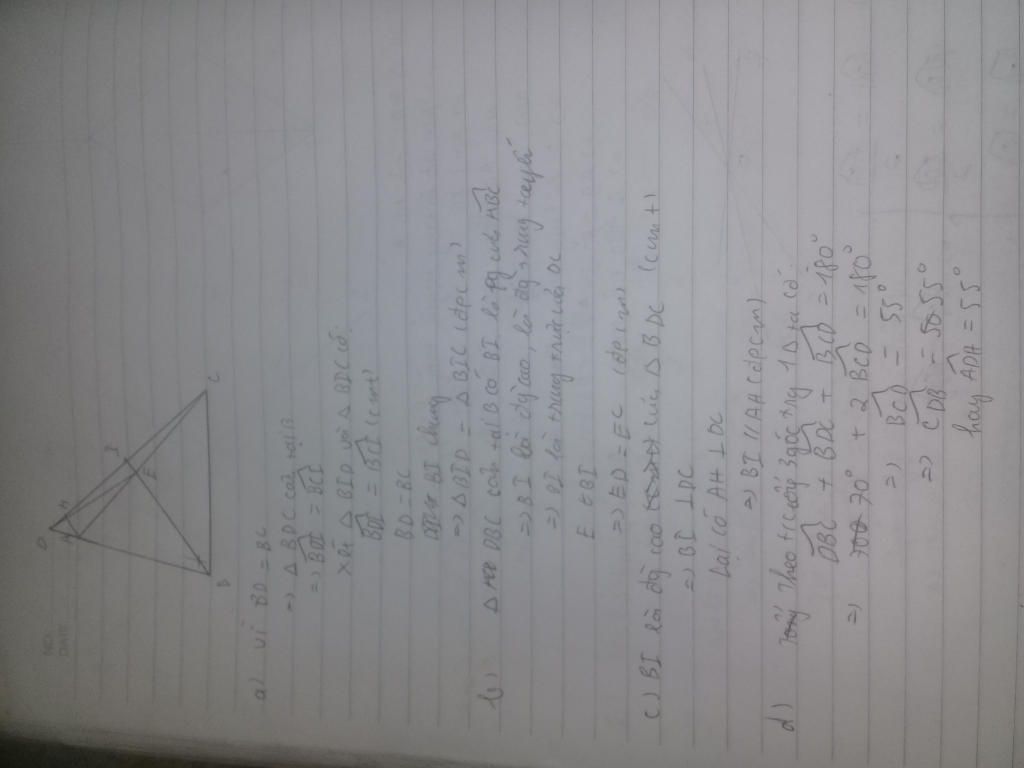 NO.
DATE
D
H
A
I
E
B
C
a) Vì BD = BC
=> Δ BDC cân tại B
=> BDI = BCI
Xét Δ BID và Δ BIC có
BDI = BCI (cmt)
BD = BC
BI chung
=> Δ BID = Δ BIC (đpcm)
b) Δ DBC cân tại B có BI là pg của
=> BI là đg cao, là đg trung tuyến
=> BI là trung trực của DC
E ∈ BI
=> ED = EC (đpcm)
c) BI là đg cao của Δ BDC (cmt)
=> BI ⊥ DC
Lại có AH ⊥ DC
=> BI // AH (đpcm)
d) Theo t/c tổng 3 góc trong 1 Δ ta có
DBC + BDC + BCD = 180°
=> 70° + 2 BCD = 180°
=> BCD = 55°
=> CDB = 55°
hay ADH = 55°